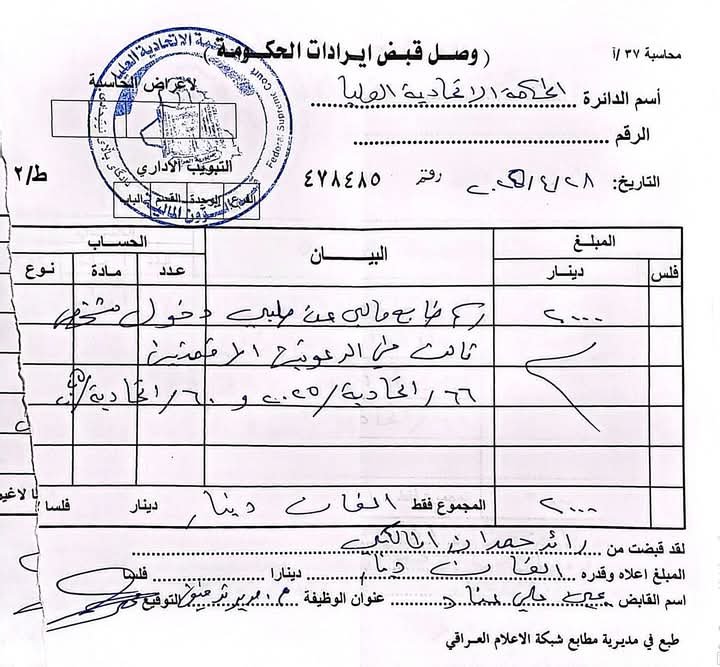 محاسبة ٣٧ /أ
(وصل قبض ايرادات الحكومة)
أسم الدائرة المحكمة الاتحادية العليا
الرقم
لاغراض الحاسبة
Federal Supreme Court
التبويب الاداري
الفرع الوحدة القسم الباب
ط/٢
التاريخ: ٢٠٢٥/٤/٢٨
رقم ٤٧٨٤٨٥
المبلغ البيان الحساب
فلس دينار عدد مادة نوع
٢٠٠٠ رسم طابع مالي عن طلبي دخول شخص
ثالث في الدعوتين المرقمتين
٦٦/اتحادية/٢٠٢٥ و ٦٠/اتحادية/٢٠٢٥
٢٠٠٠ المجموع فقط الفان دينار دينار فلسا
لا غير
لقد قبضت من رائد حمدان المالكي
المبلغ اعلاه وقدره الفان دينار دينارا فلسا
اسم القابض علي عنوان الوظيفة م. مدير التوقيع
طبع في مديرية مطابع شبكة الاعلام العراقي